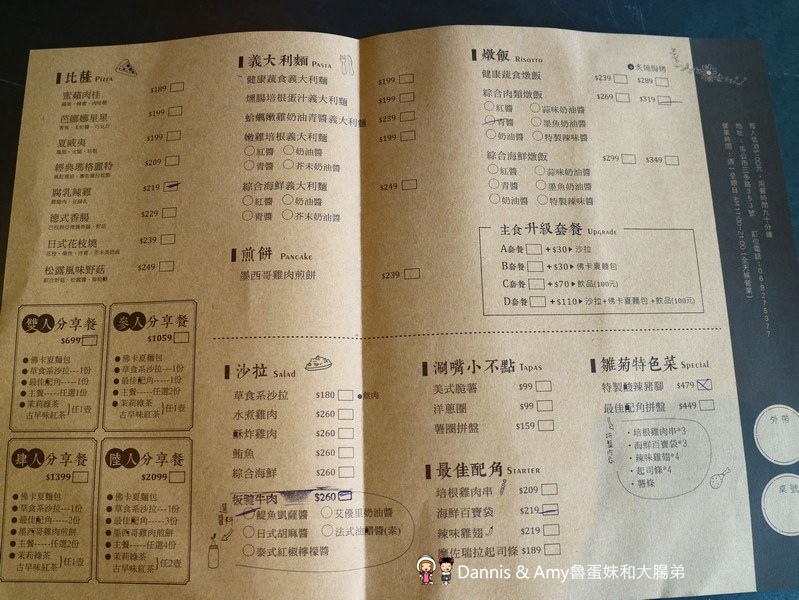 比薩 Pizza
蜜蘋肉桂 $189
芭娜娜星星 $199
夏威夷 $199
經典瑪格麗特 $209
腐乳辣雞 $219
德式香腸 $229
日式花枝燒 $239
松露風味野菇 $249
雙人分享餐
$699
●佛卡夏麵包
●草食系沙拉---1份
●最佳配角----1份
●主餐-----任選1份
●茉莉綠茶
古早味紅茶 }任1壺
參人分享餐
$1059
●佛卡夏麵包
●草食系沙拉---1份
●最佳配角----1份
●主餐-----任選2份
●茉莉綠茶
古早味紅茶 }任1壺
肆人分享餐
$1399
●佛卡夏麵包
●草食系沙拉---1份
●最佳配角----2份
●墨西哥雞肉煎餅
●主餐-----任選2份
●茉莉綠茶
古早味紅茶 }任1壺
陸人分享餐
$2099
●佛卡夏麵包
●草食系沙拉---1份
●最佳配角----3份
●墨西哥雞肉煎餅
●主餐-----任選4份
●茉莉綠茶
古早味紅茶 }任2壺
義大利麵 Pasta
健康蔬食義大利麵 $199
燻腸培根蛋汁義大利麵 $199
蛤蠣嫩雞奶油青醬義大利麵 $239
嫩雞培根義大利麵 $199
○紅醬 ○奶油醬
○青醬 ○芥末奶油醬
綜合海鮮義大利麵 $249
○紅醬 ○奶油醬
○青醬 ○芥末奶油醬
煎餅 Pancake
墨西哥雞肉煎餅 $239
沙拉 Salad
草食系沙拉 $180
水煮雞肉 $260
酥炸雞肉 $260
鮪魚 $260
綜合海鮮 $260
板腱牛肉 $260
選醬料
○鯷魚凱薩醬 ○艾優里奶油醬
○日式胡麻醬 ○法式油醋醬(素)
○泰式紅椒檸檬醬
燉飯 Risotto
炙燒焗烤
健康蔬食燉飯 $239 $289
綜合肉類燉飯 $269 $319
○紅醬 ○蒜味奶油醬
○青醬 ○墨魚奶油醬
○奶油醬 ○特製辣味醬
綜合海鮮燉飯 $299 $349
○紅醬 ○蒜味奶油醬
○青醬 ○墨魚奶油醬
○奶油醬 ○特製辣味醬
主食升級套餐 Upgrade
A套餐 +$30▶沙拉
B套餐 +$30▶佛卡夏麵包
C套餐 +$70▶飲品(100元)
D套餐 +$110▶沙拉+佛卡夏麵包+飲品(100元)
涮嘴小不點 Tapas
美式脆薯 $99
洋蔥圈 $99
薯圈拼盤 $159
最佳配角 Starter
培根雞肉串 $209
海鮮百寶袋 $219
辣味雞翅 $219
摩佐瑞拉起司條 $189
雛菊特色菜 Special
特製酸辣豬腳 $479
最佳配角拼盤 $449
・培根雞肉串*3
・海鮮百寶袋*3
・辣味雞翅*4
・起司條*4
・薯條
外帶
桌號
Dannis & Amy魯蛋妹和大腸弟